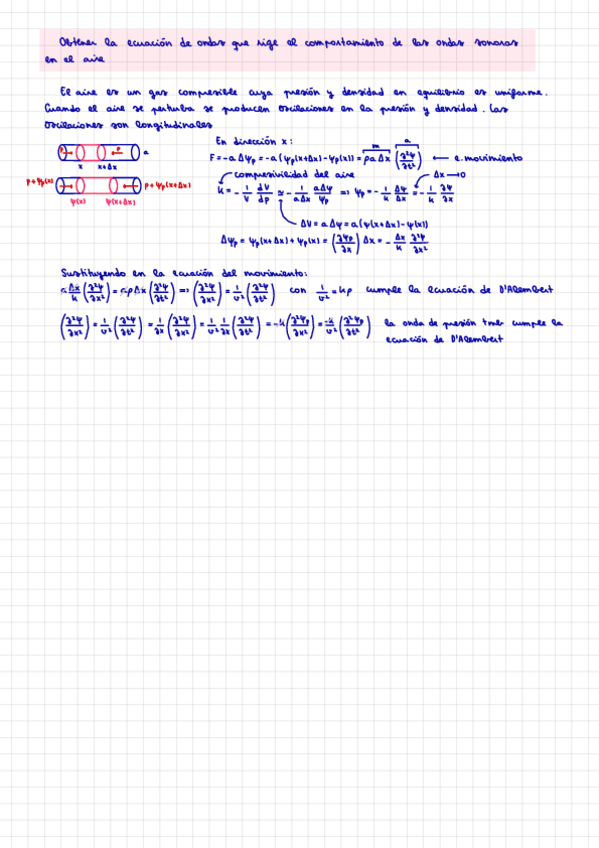 Obtener la ecuación de ondas que rige el comportamiento de las ondas sonoras
en el aire
El aire es un gas compresible cuya presión y densidad en equilibrio es uniforme.
Cuando el aire se perturba se producen oscilaciones en la presión y densidad. Las
oscilaciones son longitudinales
En dirección x:
p p a
x x+Δx
F = -a Δψp = -a (ψp(x+Δx) - ψp(x)) = ρa Δx (∂²ψ/∂t²) ← e. movimiento
m a
p+ψp(x) p+ψp(x+Δx)
ψ(x) ψ(x+Δx)
compresividad del aire Δx→0
k = - 1/V dV/dp ≃ - 1/aΔx aΔψ/ψp => ψp = - 1/k Δψ/Δx = - 1/k ∂ψ/∂x
ΔV = a Δψ = a (ψ(x+Δx) - ψ(x))
Δψp = ψp(x+Δx) + ψp(x) = (∂ψp/∂x) Δx = - Δx/k ∂²ψ/∂x²
Sustituyendo en la ecuación del movimiento:
a Δx/k (∂²ψ/∂x²) = aρΔx (∂²ψ/∂t²) => (∂²ψ/∂x²) = 1/v² (∂²ψ/∂t²) con 1/v² = kρ cumple la ecuación de D'Alembert
(∂²ψ/∂x²) = 1/v² (∂²ψ/∂t²) = 1/∂x (∂²ψ/∂x²) = 1/v² 1/∂x (∂²ψ/∂t²) = -k (∂²ψp/∂x²) = -k/v² (∂²ψp/∂t²) la onda de presión tmb cumple la
ecuación de D'Alembert